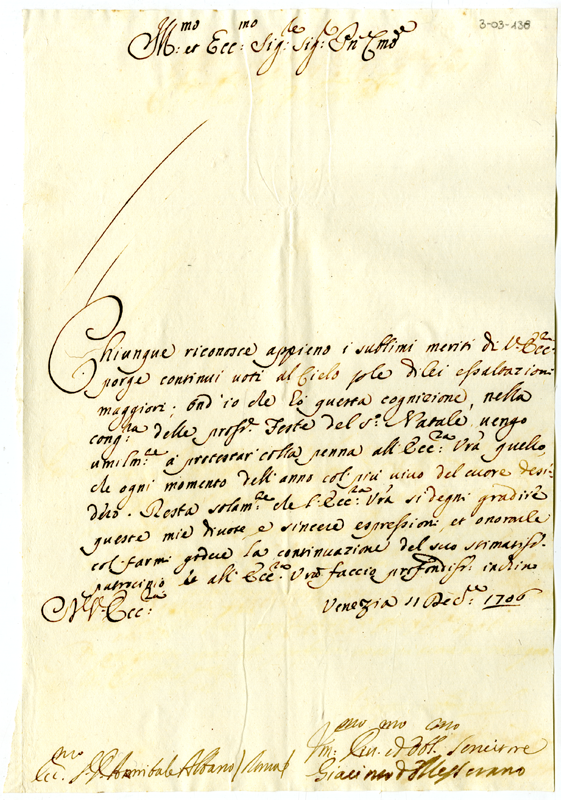 3-03-138
Ill:mo et Ecc:mo Sig:re Sig:r Pn̄e Cmo
Chiunque riconosce appieno i sublimi meriti di V: Ecc:za
porge continui voti al Cielo p le di lei essaltazioni
maggiori; ond'io che hò questa cognizione, nella
cong:ra delle pross:e Feste del S:o Natale vengo
umilm:te a preccorar colla penna all'Ecc:za Vr̄a quello,
che ogni momento dell'anno col più vivo del cuore desi-
dero. Resta solam:te che l'Ecc:za Vr̄a si degni gradire
queste mie divote e sincere espressioni et onorarle
col farmi godere la continuazione del suo stimatiss:o
patrocinio e all'Ecc:za Vr̄a faccio profondiss:o inchino
Di V: Ecc:za
Venezia 11 Dec:re 1706
Ecc:mo S:r D Annibale Albano / Roma /
Um:mo Dev:mo et Obl:mo Servitore
Giacinto di Messerano